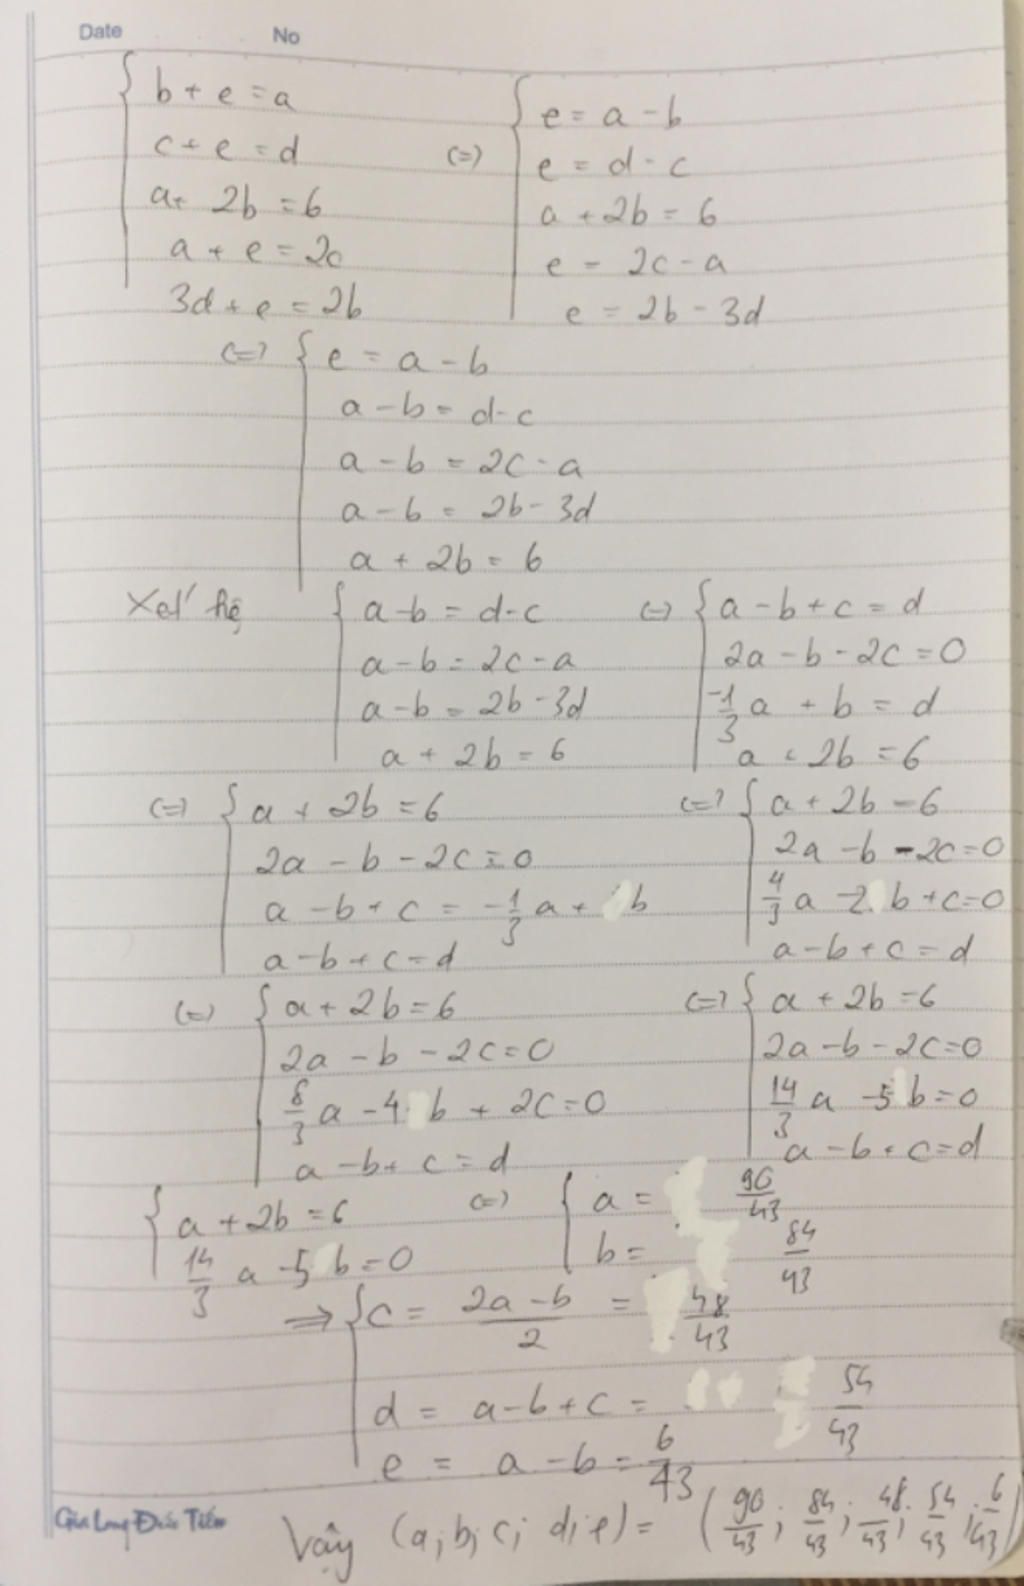 Date No
b + e = a
c + e = d
a + 2b = 6
a + e = 2c
3d + e = 2b
(=) e = a - b
e = d - c
a + 2b = 6
e = 2c - a
e = 2b - 3d
(=) e = a - b
a - b = d - c
a - b = 2c - a
a - b = 2b - 3d
a + 2b = 6
Xét hệ
a - b = d - c
a - b = 2c - a
a - b = 2b - 3d
a + 2b = 6
(=) a - b + c = d
2a - b - 2c = 0
-1/3 a + b = d
a + 2b = 6
(=) a + 2b = 6
2a - b - 2c = 0
a - b + c = -1/3 a + b
a - b + c = d
(=) a + 2b = 6
2a - b - 2c = 0
4/3 a - 2 b + c = 0
a - b + c = d
(=) a + 2b = 6
2a - b - 2c = 0
8/3 a - 4 b + 2c = 0
a - b + c = d
(=) a + 2b = 6
2a - b - 2c = 0
14/3 a - 5 b = 0
a - b + c = d
a + 2b = 6
14/3 a - 5 b = 0
(=) a = 90/43
b = 84/43
=> c = 2a - b / 2 = 48/43
d = a - b + c = 54/43
e = a - b = 6/43
Gia Long Đức Tiến
Vậy (a; b; c; d; e) = (90/43; 84/43; 48/43; 54/43; 6/43)